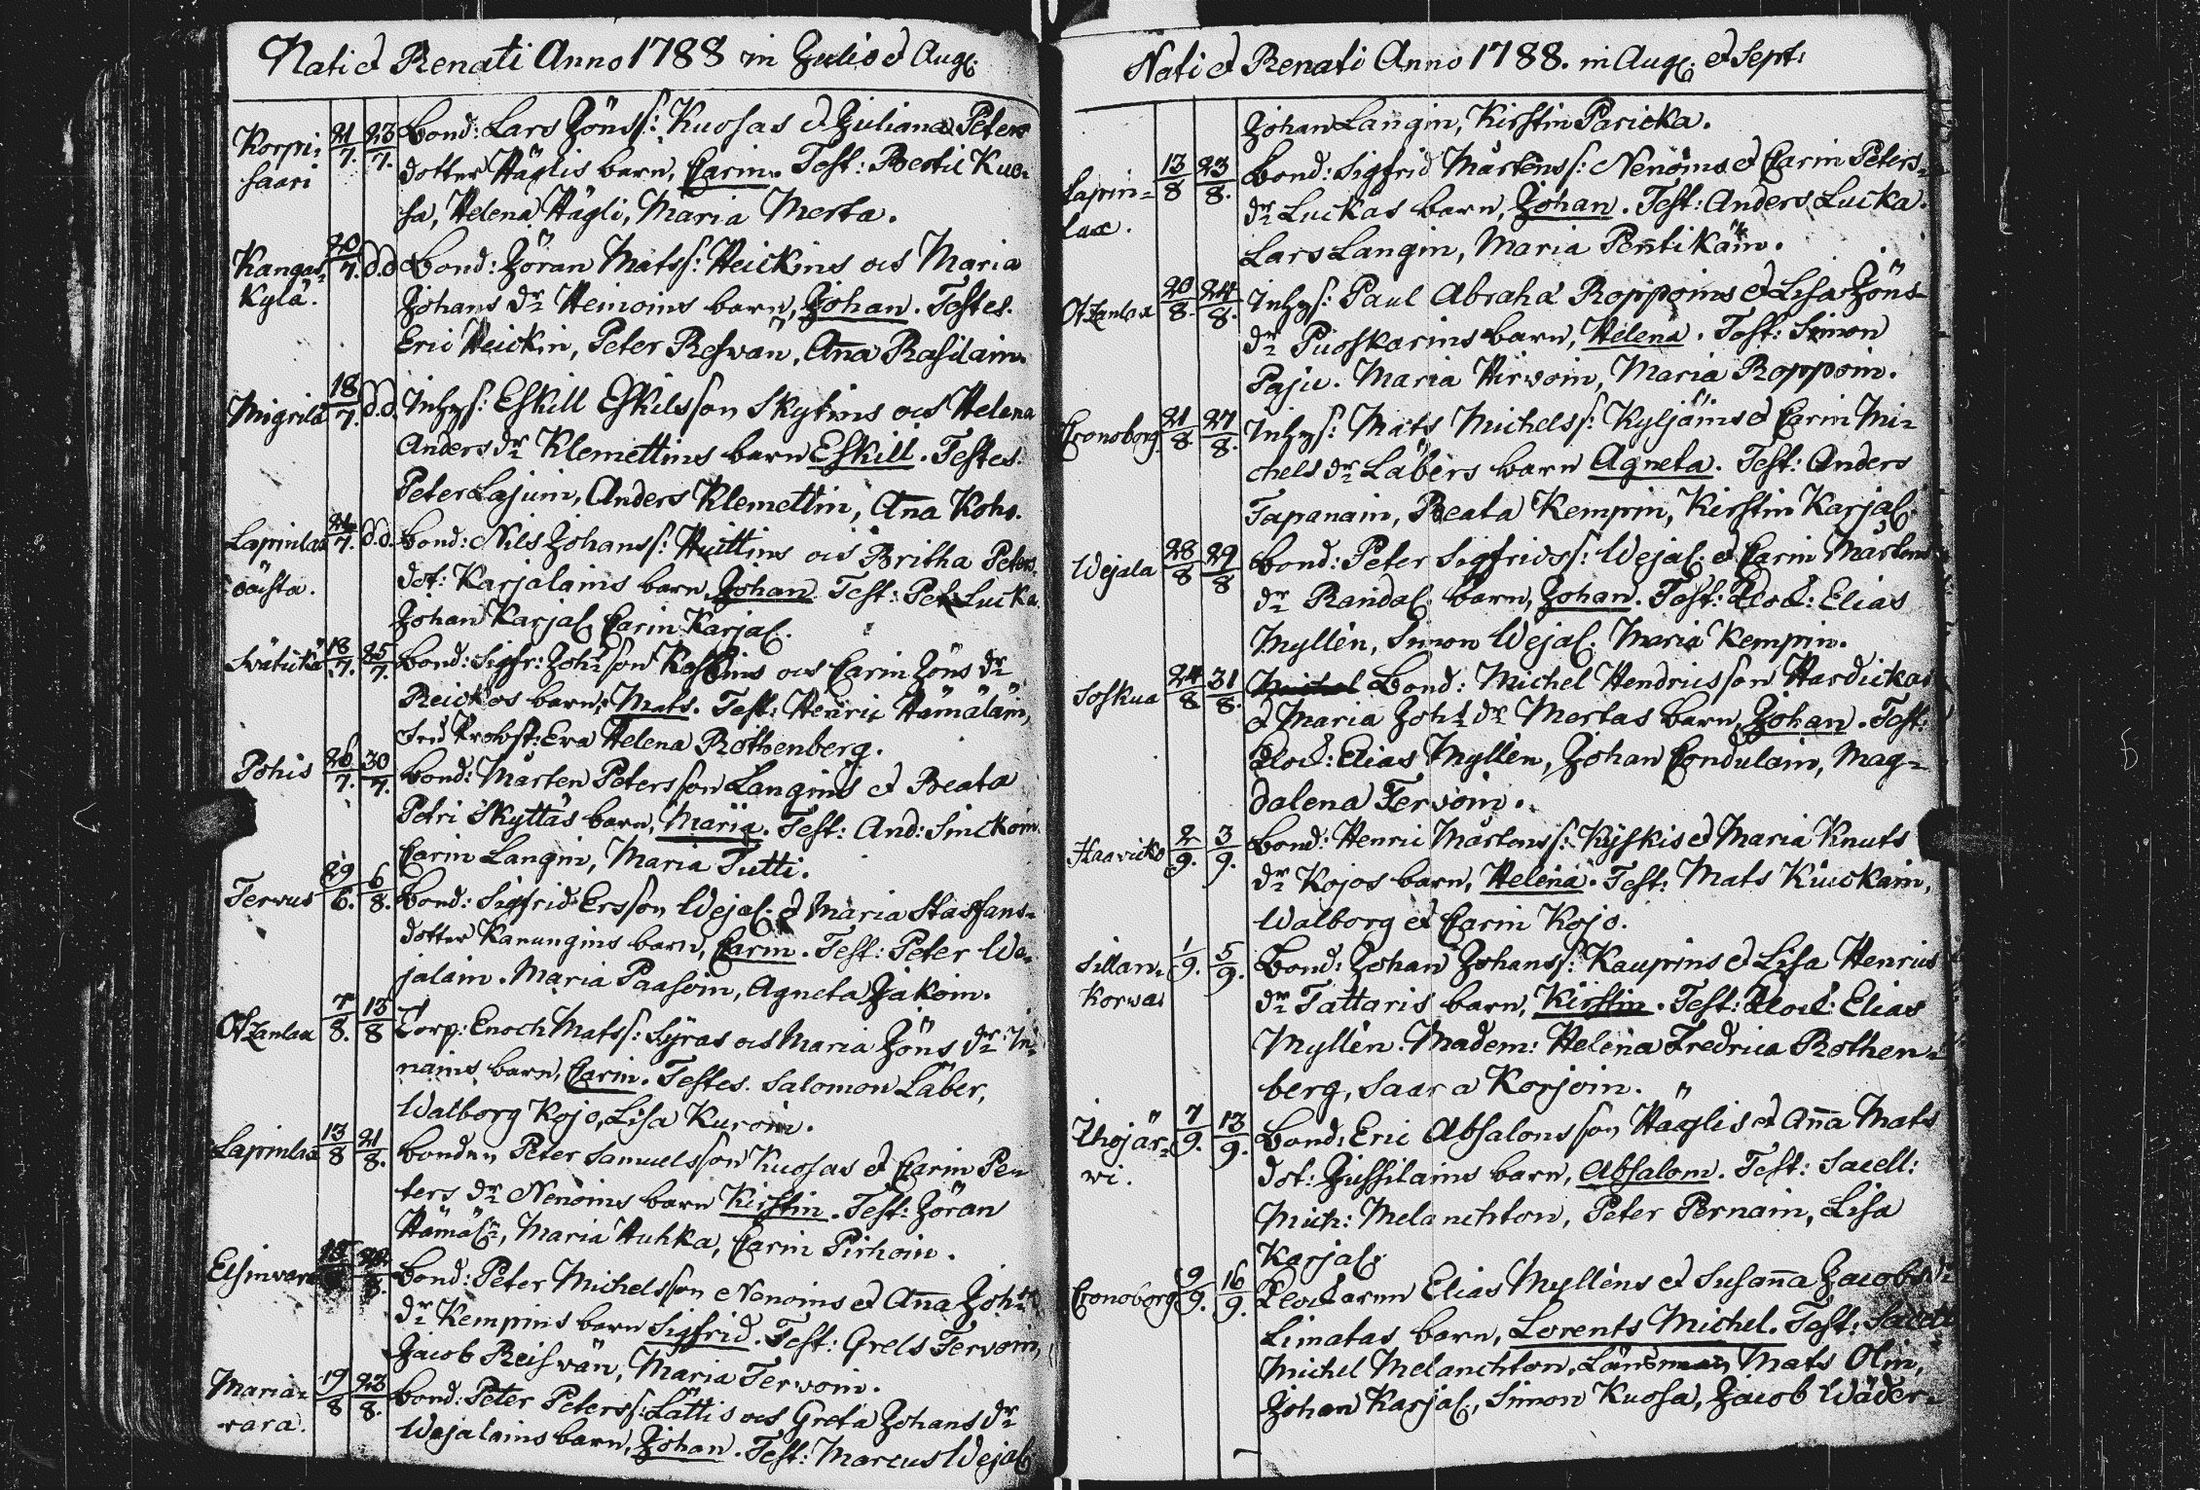 Nati et Renati Anno 1788 in Julio et Aug.
Korpi- 21/7. 23/7. Bond: Lars Jönss: Kuosas et Juliana Peters
saari dotter Häglis barn, Carin. Test: Bertil Kuo-
sa, Helena Hägli, Maria Merta.
Kangas- 20/7. d.d. Bond: Jöran Matss: Heickins och Maria
kylä. Johans dr Heinoins barn, Johan. Testes.
Eric Heickin, Peter Reswän, Anna Rasilain.
Migrilä 18/7. d.d. Inhys: Eskill Eskilsson Skytins och Helena
Anders dr Klemettins barn Eskill. Testes.
Peter Lajuin, Anders Klemettin, Ana Koho.
Lapinlax 24/7. d.d. Bond: Nils Johanss: Huittins och Britha Peters
dot: Karjalains barn, Johan. Test: Pet: Lucka
Johan Karjal. Carin Karjal.
18/7. 25/7. Bond: Sigfr: Joh: son och Carin Jöns dr
Reickos barn, Mats. Test: Henric Hämäläin,
Probst: Eva Helena Rothenberg.
Pohis 26/7. 30/7. Bond: Mårten Petersson Langins et Beata
Petri Skyttäs barn, Maria. Test: And: Sinckoin
Carin Langin, Maria Tutti.
Tervus 29/6. 6/8. Bond: Sigfrid Ersson Wejal. et Maria Staffans-
dotter Kanungins barn, Carin. Test: Peter We-
jalain. Maria Paasoin, Agneta Jakoin.
Otzanlax 7/8. 13/8 Torp: Enoch Matss: Syras och Maria Jöns dr In-
nains barn, Carin. Testes. Salomon Läber,
Walborg Kojo, Lisa Kuroin.
Lapinlax 13/8 21/8. bonden Peter Samuelsson Kuosas et Carin Pe-
ters dr Nenoins barn Kirstin. Test: Jöran
Hämäl:n, Maria Huhka, Carin Pirhoin.
Elsinvara Bond: Peter Michelsson Nenoins et Anna Joh:
dr Kempins barn Sigfrid. Test: Grels Tervoin,
Jacob Reiswän, Maria Tervoin.
Maria- 19/8 23/8. Bond: Peter Peterss: Lättis och Greta Johans dr
vara. Wejalains barn, Johan. Test: Marcus Wejal.
Nati et Renati Anno 1788. in Aug. et Sept:
Johan Langin, Kirstin Paricka.
Lapin- 13/8 23/8. Bond: Sigfrid Mårtens s: Nenoins et Carin Peters-
lax. dr Luckas barn, Johan. Test: Anders Lucka.
Lars Langin, Maria Pentikäin.
Otzanlax 20/8. 24/8. Inhys: Paul Abraha Roppoins et Lisa Jöns
dr Puoskarins barn, Helena. Test: Simon
Paju. Maria Hirvoin, Maria Roppoin.
Cronoborg 21/8. 27/8. Inhys: Mats Michelss: Kyljäins et Carin Mi-
chels dr Läbers barn Agneta. Test: Anders
Tapanain, Beata Kempin, Kirstin Karjal.
Wejala 28/8 29/8 Bond: Peter Sigfridss: Wejal. et Carin Mårtens
dr Randal. barn, Johan. Test: Klock: Elias
Myllén, Simon Wejal. Maria Kempin.
Soskua 24/8. 31/8. Michel Bond: Michel Hendricsson Hardickas
et Maria Joh: dr Mertas barn, Johan. Test:
Klock: Elias Myllén, Johan Condulain, Mag-
dalena Tervoin.
Haavicko 2/9. 3/9. Bond: Henric Mårtenss: Kyskis et Maria Knuts
dr Kojos barn, Helena. Test: Mats Kuickain,
Walborg et Carin Kojo.
Sillan- 1/9. 5/9. Bond: Johan Johanss: Kaupins et Lisa Henrics
korwa dr Tattaris barn, Kirstin. Test: Klock: Elias
Myllén. Madem: Helena Fredrica Rothen-
berg, Saara Korjoin.
Ihojär- 7/9. 13/9. Bond: Eric Absalonsson Häglis et Anna Mats
vi. dot: Jussilains barn, Absalom. Test: Sacell:
Mich: Melanchton, Peter Pernain, Lisa
Karjal.
Cronoborg 9/9. 16/9. Klockaren Elias Mylléns et Susanna Jacobs dr
Limatas barn, Lorents Michel. Test: Sacell:
Michel Melanchton, Länsman Mats Olin,
Johan Karjal., Simon Kuosa, Jacob Wäder-